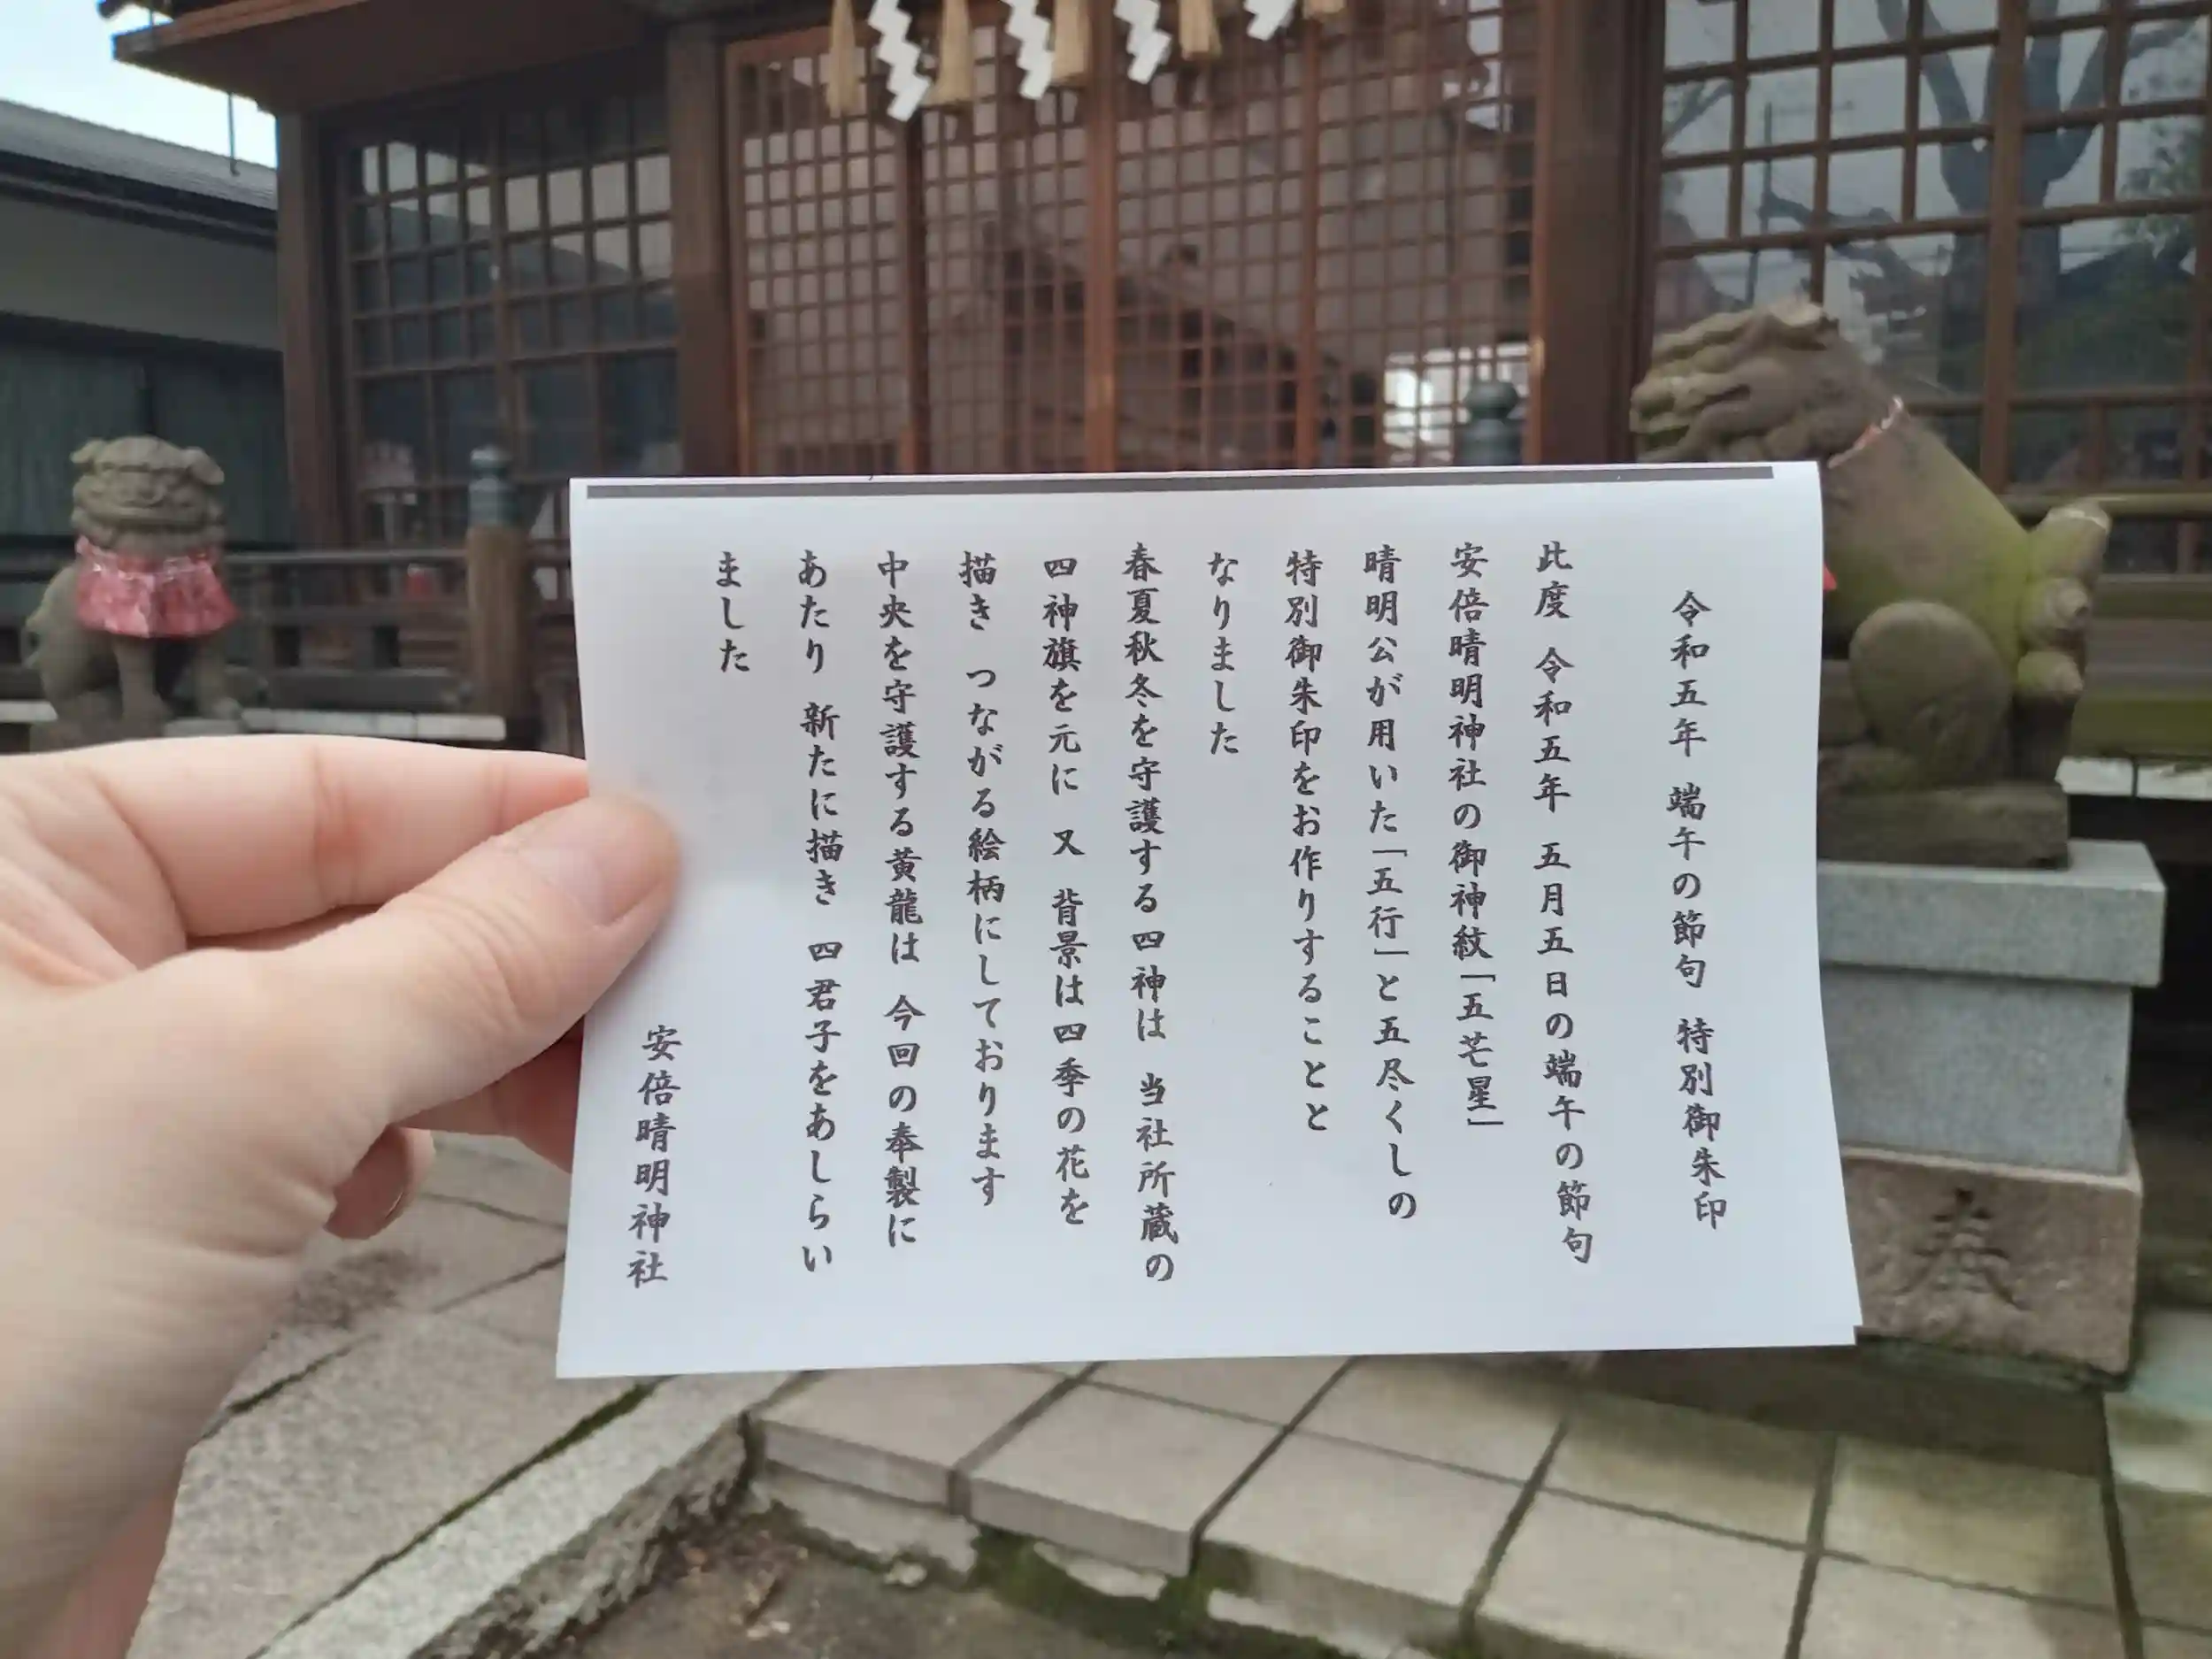 令和五年 端午の節句 特別御朱印
此度 令和五年 五月五日の端午の節句
安倍晴明神社の御神紋「五芒星」
晴明公が用いた「五行」と五尽くしの
特別御朱印をお作りすることと
なりました
春夏秋冬を守護する四神は 当社所蔵の
四神旗を元に 又 背景は四季の花を
描き つながる絵柄にしております
中央を守護する黄龍は 今回の奉製に
あたり 新たに描き 四君子をあしらい
ました
安倍晴明神社
奉